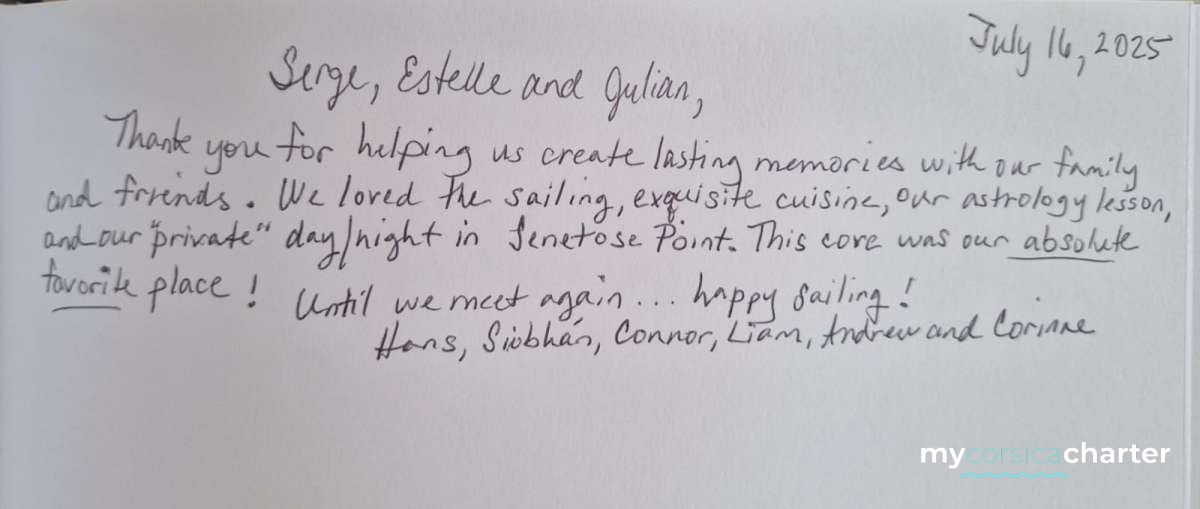 July 16, 2025
Serge, Estelle and Julian,
Thank you for helping us create lasting memories with our family
and friends. We loved the sailing, exquisite cuisine, our astrology lesson,
and our "private" day/night in Senetose Point. This cove was our absolute
favorite place! Until we meet again... happy sailing!
Hans, Siobhán, Connor, Liam, Andrew and Corinne
mycorsicacharter